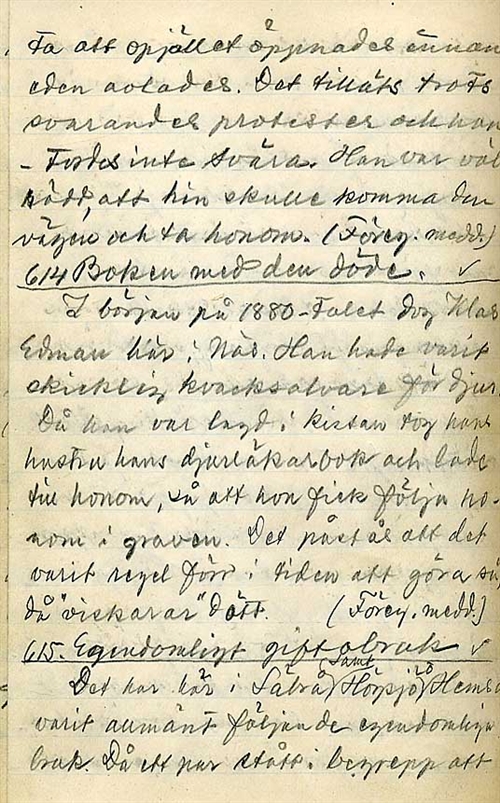 ta att spjället öppnades innan
eden avlades. Det tilläts trots
svarandes protester och han
tordes inte svära. Han var väl
rädd, att hin skulle komma den
vägen och ta honom. (Föreg. medd.)
614 Boken med den döde. ✓
I början på 1880-talet dog Klas
Edman här i Näs. Han hade varit
skicklig kvacksalvare för djur.
Då han var lagd i kistan tog hans
hustru hans djurläkarbok och lade
till honom, så att hon fick följa ho-
nom i graven. Det påstås att det
varit regel förr i tiden att göra så
då "viskarar" dött. (Föreg. medd.)
615. Egendomligt giftobruk ✓
Det har här i samt Hörsjö
varit allmänt följande egendomliga
bruk. Då ett par stått i begrepp att